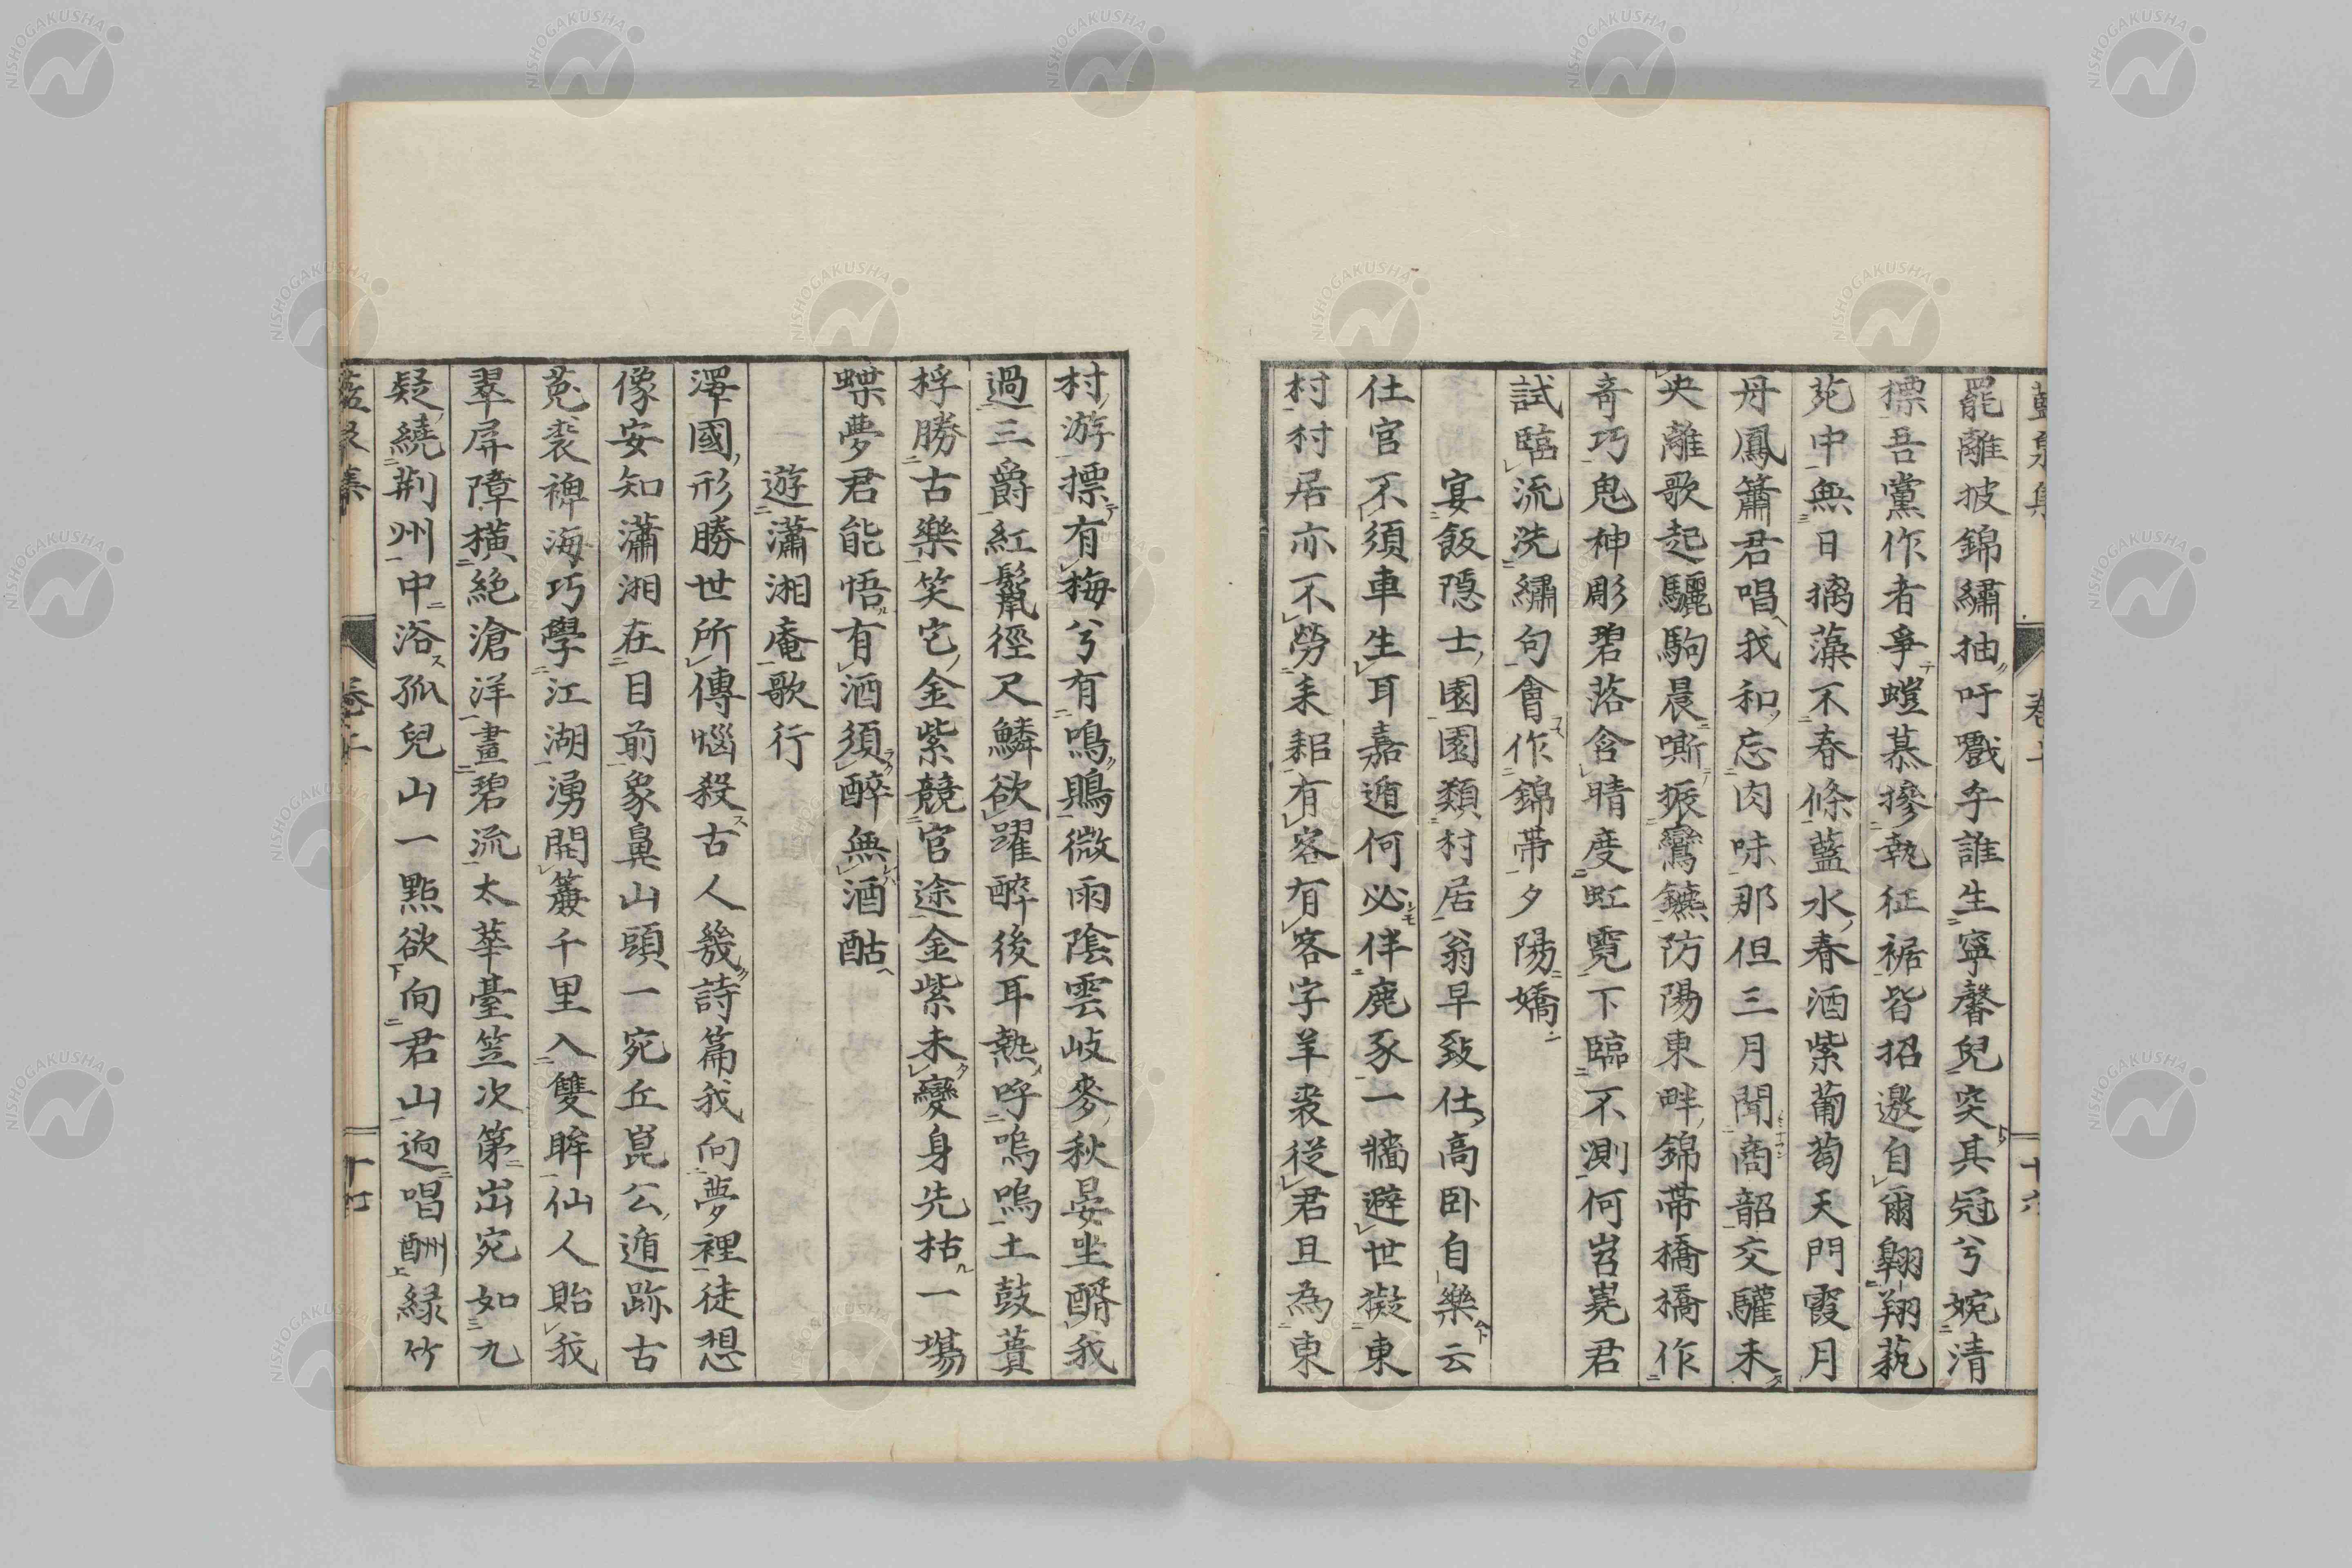 罷離披錦繡抽吁戲乎誰生寧馨兒突其冠兮婉清
摽吾黨作者爭螳慕摻執征裾皆招邀自爾翺翔萟
苑中無日摛藻不春條藍水春酒紫葡萄天門霞月
丹鳳簫君唱我和忘肉味那但三月聞商韶交驩未
央離歌起驪駒晨嘶振鸞鑣防陽東畔錦帶橋橋作
奇巧鬼神彫碧落含晴度虹霓下臨不測何岧嶤君
試臨流洗繡句會作錦帶夕陽嬌
宴飯隱士園園類村居翁早致仕高臥自樂云
仕官不須車生耳嘉遁何必伴鹿豕一牆避世擬東
村村居亦不勞耒耜有客有客字羊裘從君且為東
村游摽有梅兮有鳴鵙微雨陰雲岐麥秋晏坐醑我
過三爵紅鬣徑尺鱗欲躍醉後耳熱呼嗚嗚土鼓蕢
桴勝古樂笑它金紫競官途金紫未變身先枯一場
蝶夢君能悟有酒須醉無酒酤
遊瀟湘庵歌行
澤國形勝世所傳惱殺古人幾詩篇我向夢裡徒想
像安知瀟湘在目前象鼻山頭一宛丘崑公遁跡古
菟裘裨海巧學江湖湧開簾千里入雙眸仙人貽我
翠屏障橫絕滄洋畫碧流太華臺笠次第出宛如九
疑繞荊州中浴孤兒山一點欲向君山迥唱酬綠竹